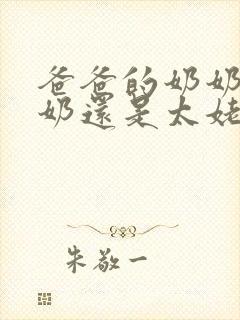 爸爸的奶奶
奶還是太姥
朱敬一